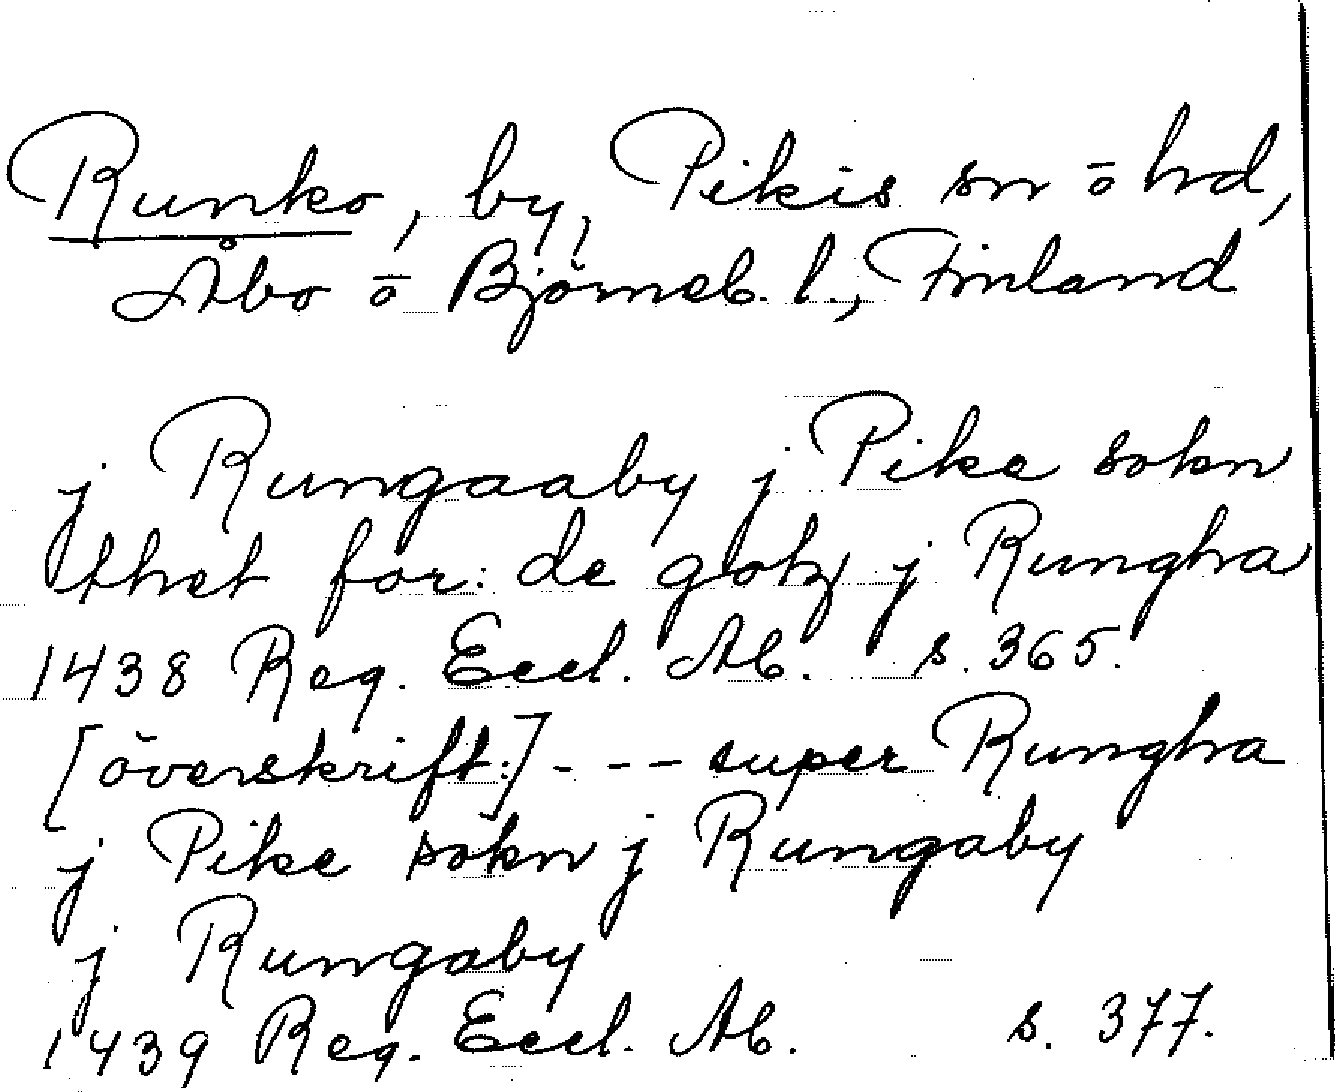 Runko, by, Pikis sn ō hd,
Åbo ō Björneb. l., Finland
j Rungaaby j Pike sokn
thet for: de gotz j Rungha
1438 Reg. Eccl. Ab. s. 365.
[överskrift:] - - - super Rungha
j Pike sokn j Rungaby
j Rungaby
1439 Reg. Eccl. Ab. s. 377.